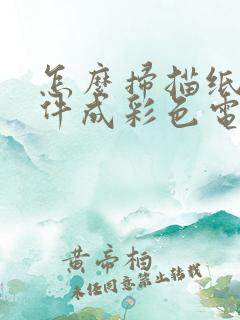 怎麼掃描紙
件成彩色電
黄帝柏
未經同意禁止轉載